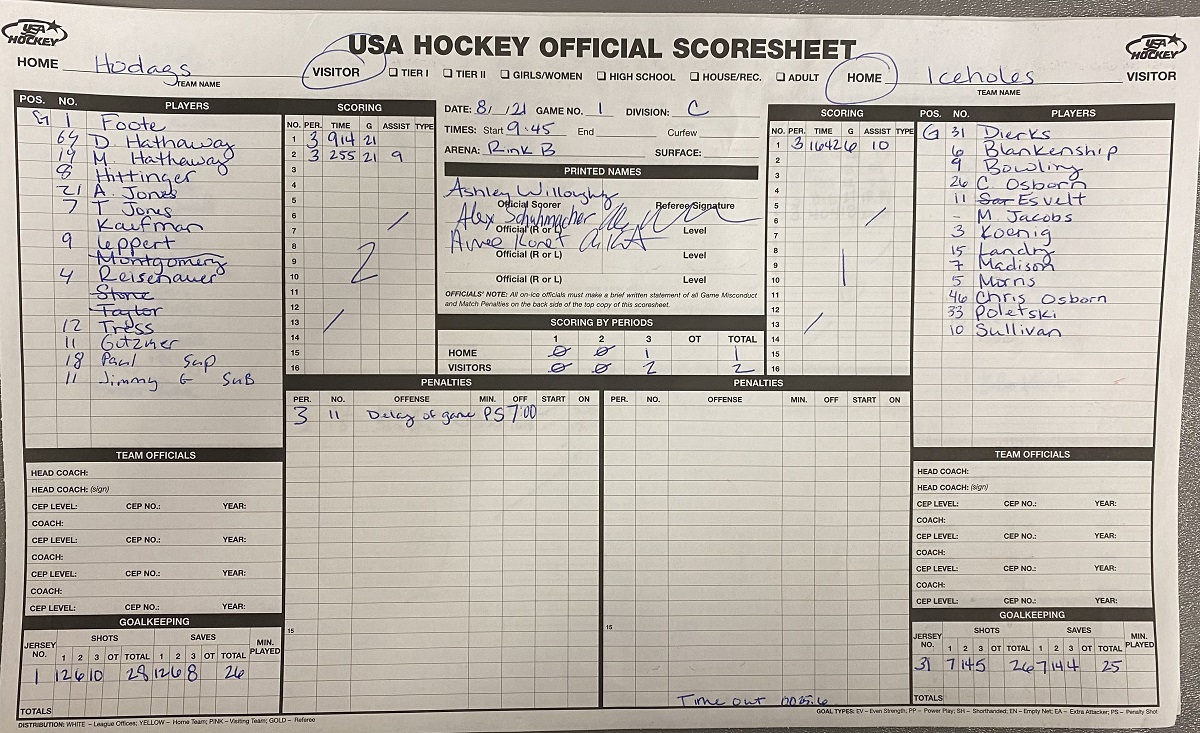 USA HOCKEY
USA HOCKEY OFFICIAL SCORESHEET
USA HOCKEY
HOME Hodags VISITOR
TEAM NAME
☐ TIER I ☐ TIER II ☐ GIRLS/WOMEN ☐ HIGH SCHOOL ☐ HOUSE/REC. ☐ ADULT
HOME Iceholes VISITOR
TEAM NAME
POS. NO. PLAYERS
G 1 Foote
69 D. Hathaway
19 M. Hathaway
8 Hittinger
21 A. Jones
7 T Jones
Kaufman
9 Leppert
Montgomery
4 Reisenauer
Stone
Taylor
12 Tress
11 Gutzmer
18 Paul Sup
11 Jimmy G SuB
SCORING
NO. PER. TIME G ASSIST TYPE
1 3 914 21
2 3 255 21 9
3
4
5
6
7
8
9
10
11
12
13
14
15
16
2
DATE: 8/ /21 GAME NO. 1 DIVISION: C
TIMES: Start 9:45 End Curfew
ARENA: Rink B SURFACE:
PRINTED NAMES
Ashley Willoughby
Official Scorer Referee/Signature
Alex
Official (R or L) Level
Aimee
Official (R or L) Level
Official (R or L) Level
OFFICIALS' NOTE: All on-ice officials must make a brief written statement of all Game Misconduct
and Match Penalties on the back side of the top copy of this scoresheet.
SCORING BY PERIODS
1 2 3 OT TOTAL
HOME 0 0 1 1
VISITORS 0 0 2 2
SCORING
NO. PER. TIME G ASSIST TYPE
1 3 1642 6 10
2
3
4
5
6
7
8
9
10
11
12
13
14
15
16
1
POS. NO. PLAYERS
G 31 Dierks
6 Blankenship
9 Bowling
26 C. Osborn
11 Sar Esvelt
- M. Jacobs
3 Koenig
15 Landry
7 Madison
5 Morris
46 Chris Osborn
33 Poletski
10 Sullivan
PENALTIES
PER. NO. OFFENSE MIN. OFF START ON
3 11 Delay of game PS 7:00
15
PENALTIES
PER. NO. OFFENSE MIN. OFF START ON
15
Time out
TEAM OFFICIALS
HEAD COACH:
HEAD COACH: (sign)
CEP LEVEL: CEP NO.: YEAR:
COACH:
CEP LEVEL: CEP NO.: YEAR:
COACH:
CEP LEVEL: CEP NO.: YEAR:
COACH:
CEP LEVEL: CEP NO.: YEAR:
GOALKEEPING
JERSEY NO. SHOTS SAVES MIN. PLAYED
1 2 3 OT TOTAL 1 2 3 OT TOTAL
1 12 6 10 28 12 6 8 26
TOTALS
TEAM OFFICIALS
HEAD COACH:
HEAD COACH: (sign)
CEP LEVEL: CEP NO.: YEAR:
COACH:
CEP LEVEL: CEP NO.: YEAR:
COACH:
CEP LEVEL: CEP NO.: YEAR:
COACH:
CEP LEVEL: CEP NO.: YEAR:
GOALKEEPING
JERSEY NO. SHOTS SAVES MIN. PLAYED
1 2 3 OT TOTAL 1 2 3 OT TOTAL
31 7 14 5 26 7 14 4 25
TOTALS
DISTRIBUTION: WHITE – League Offices; YELLOW – Home Team; PINK – Visiting Team; GOLD – Referee
GOAL TYPES: EV – Even Strength; PP – Power Play; SH – Shorthanded; EN – Empty Net; EA – Extra Attacker; PS – Penalty Shot